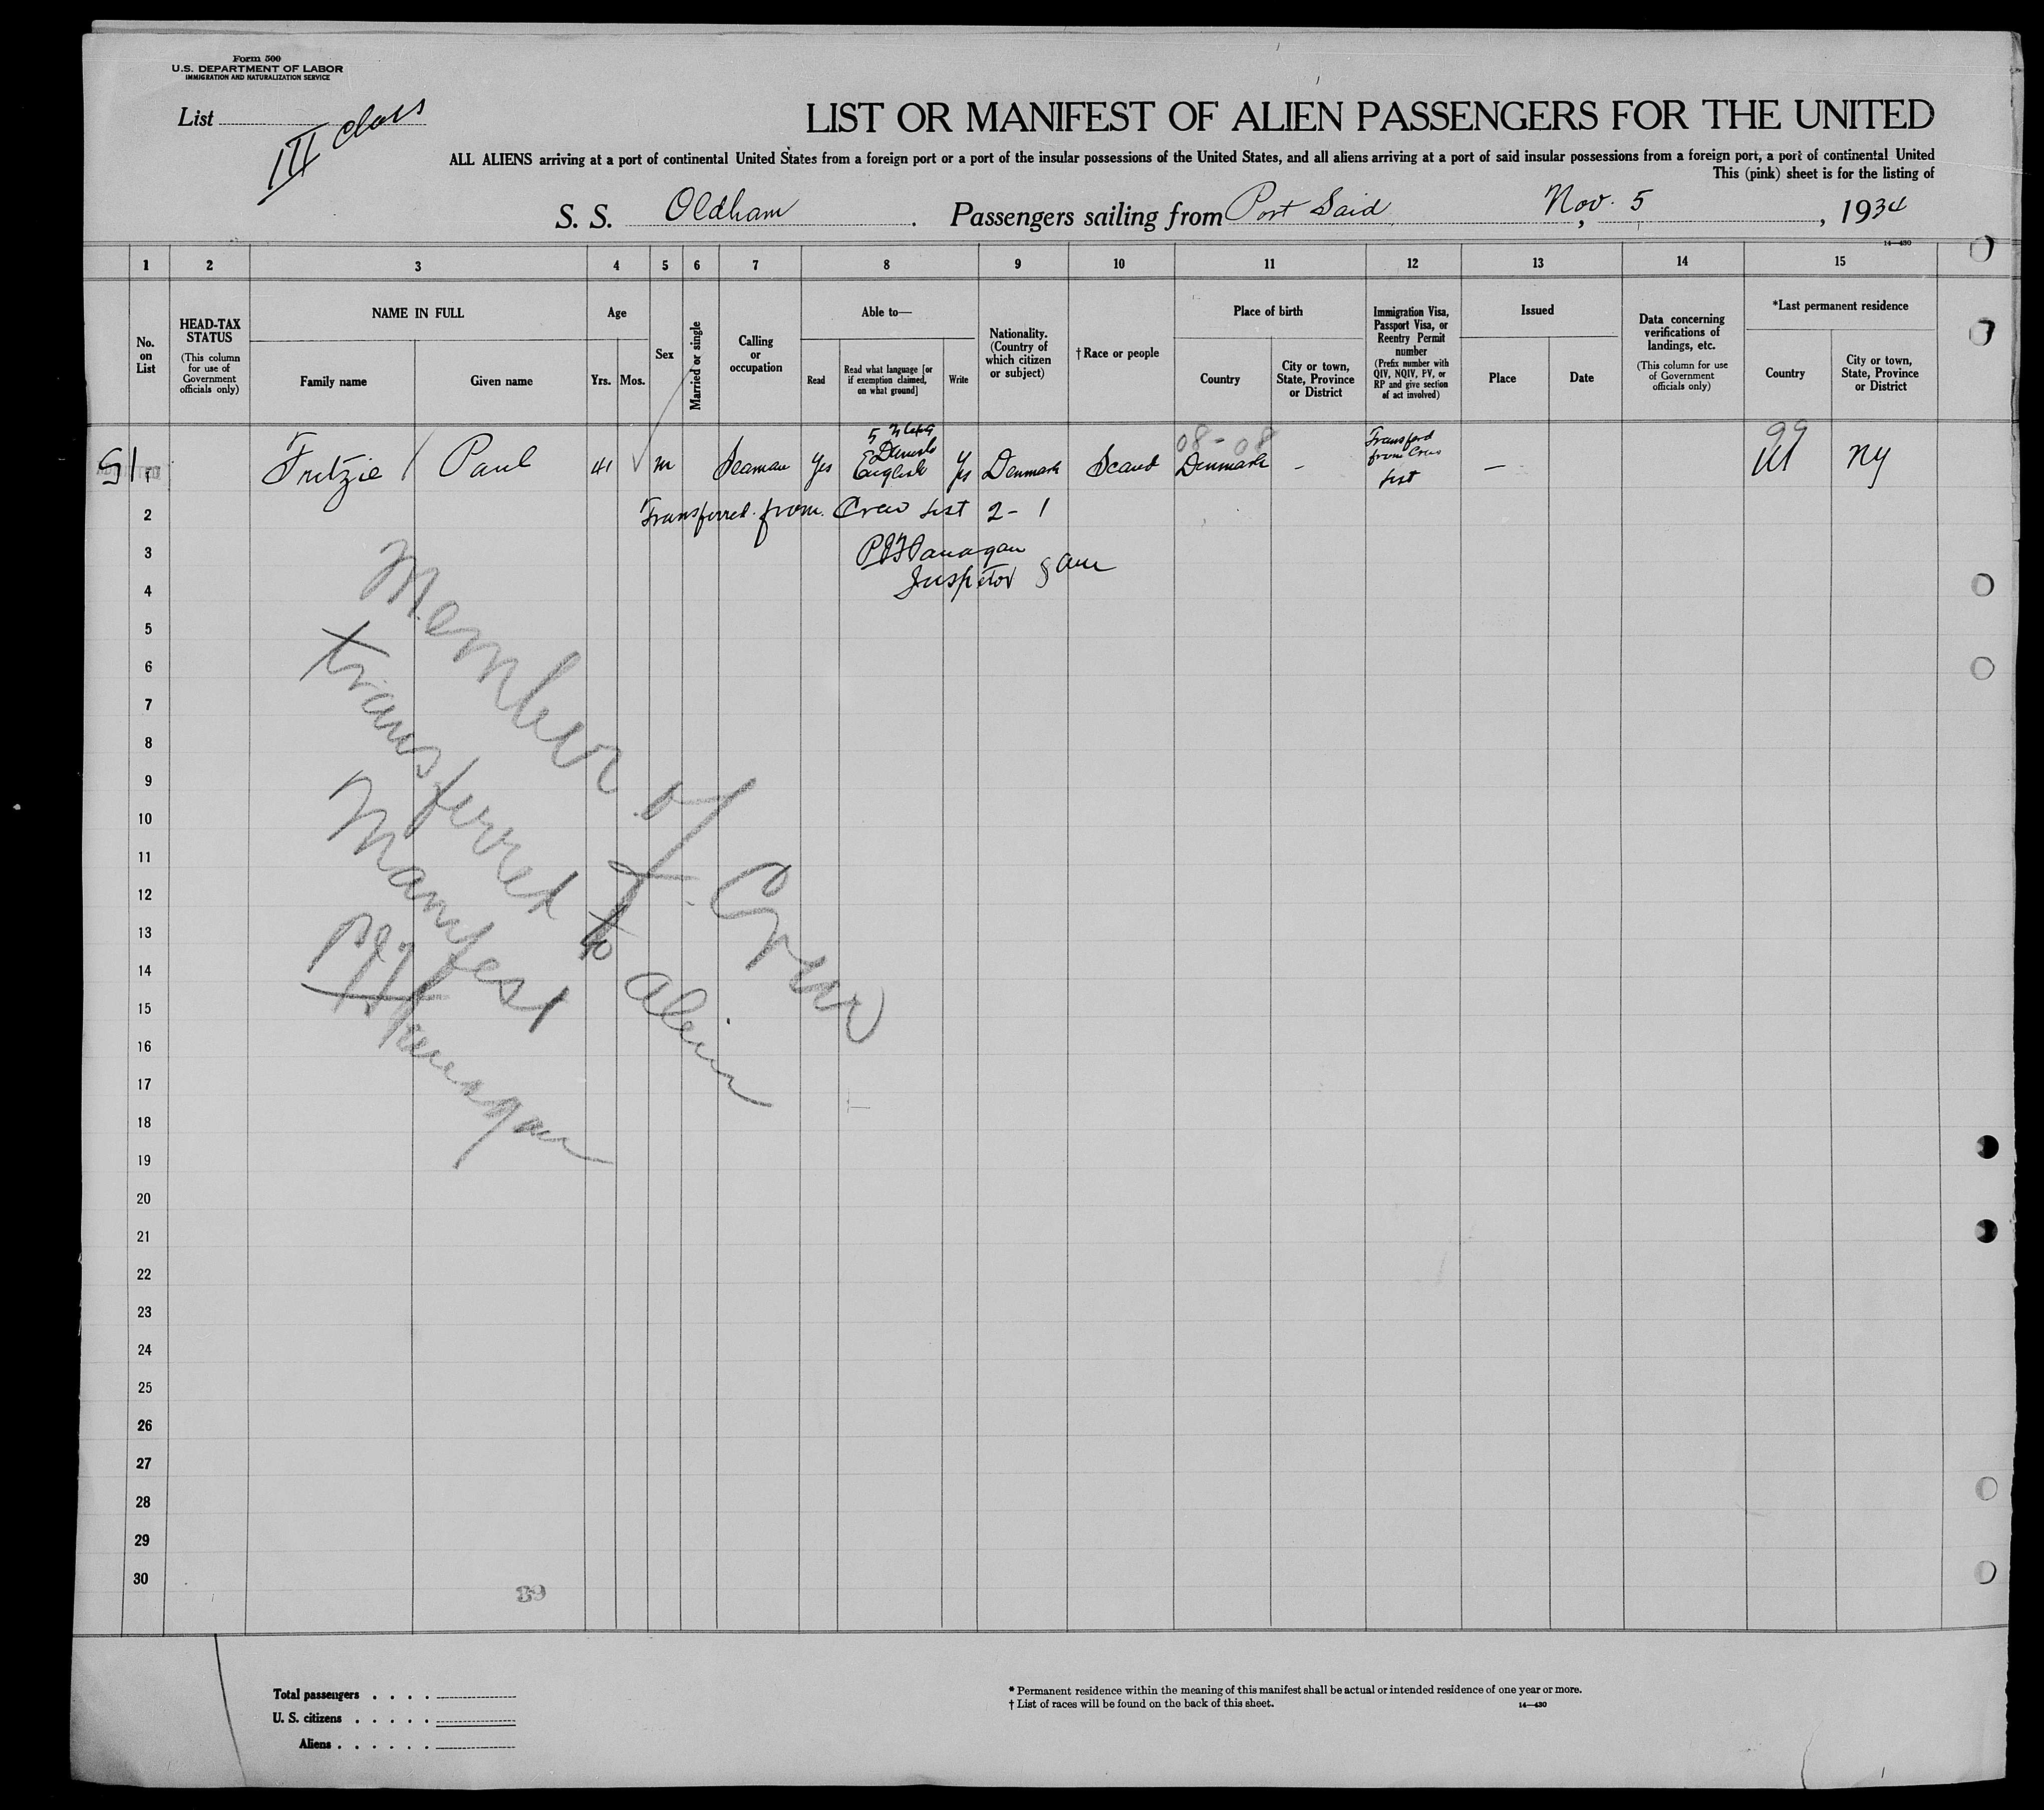 Form 500
U.S. DEPARTMENT OF LABOR
IMMIGRATION AND NATURALIZATION SERVICE
List
III class
LIST OR MANIFEST OF ALIEN PASSENGERS FOR THE UNITED
ALL ALIENS arriving at a port of continental United States from a foreign port or a port of the insular possessions of the United States, and all aliens arriving at a port of said insular possessions from a foreign port, a port of continental United
This (pink) sheet is for the listing of
S. S. Oldham. Passengers sailing from Port Said, Nov. 5, 1934
14—430
1 2 3 4 5 6 7 8 9 10 11 12 13 14 15
No. on List
HEAD-TAX STATUS
(This column for use of Government officials only)
NAME IN FULL
Family name
Given name
Age
Yrs. Mos.
Sex
Married or single
Calling or occupation
Able to—
Read
Read what language [or if exemption claimed, on what ground]
Write
Nationality. (Country of which citizen or subject)
†Race or people
Place of birth
Country
City or town, State, Province or District
Immigration Visa, Passport Visa, or Reentry Permit number
(Prefix number with QIV, NQIV, PV, or RP and give section of act involved)
Issued
Place
Date
Data concerning verifications of landings, etc.
(This column for use of Government officials only)
*Last permanent residence
Country
City or town, State, Province or District
08- 08
99
Fritzie Paul 41 m Seaman Yes Danish English Yes Denmark Scand Denmark - Transferd from Crew List — NY
2 Transferred from Crew List 2-1
3 P J Flanagan
4 Inspector
5
6
7
8
9
10
11
12
13
14
15
16
17
18
19
20
21
22
23
24
25
26
27
28
29
30
Member of Crew
transferred to alien
Manifest
PJ Flanagan
39
Total passengers . . . .
U. S. citizens . . . . .
Aliens . . . . . .
* Permanent residence within the meaning of this manifest shall be actual or intended residence of one year or more.
† List of races will be found on the back of this sheet.
14—430